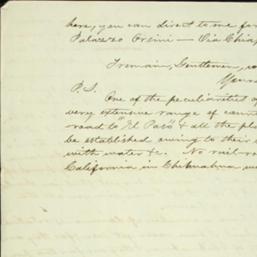 here, you can direct to me for
Palazzo Orsini — Via Chia,
I remain, Gentlemen,
Yours
P.S.
One of the peculiarities of
very extensive range of
road to "El Paso" & all the
be established owing to their
with water &c. No rail-ro
California in Chihuahua